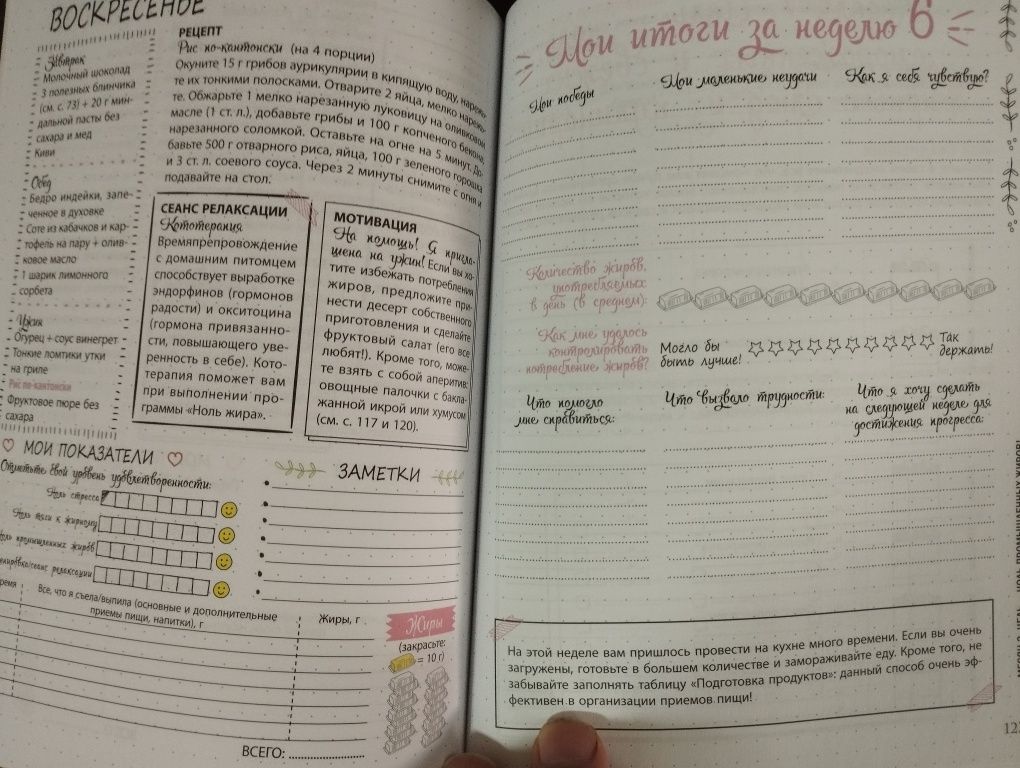 ВОСКРЕСЕНЬЕ
Завтрак
Молочный шоколад
3 полезных блинчика
(см. с. 73) + 20 г мин-
дальной пасты без
сахара и мед
Киви
Обед
Бедро индейки, запе-
ченное в духовке
Соте из кабачков и кар-
тофель на пару + олив-
ковое масло
1 шарик лимонного
сорбета
Ужин
Огурец + соус винегрет
Тонкие ломтики утки
на гриле
Рис по-кантонски
Фруктовое пюре без
сахара
РЕЦЕПТ
Рис по-кантонски (на 4 порции)
Окуните 15 г грибов аурикулярии в кипящую воду, нарежь-
те их тонкими полосками. Отварите 2 яйца, мелко нарежь-
те. Обжарьте 1 мелко нарезанную луковицу на оливковом
масле (1 ст. л.), добавьте грибы и 100 г копченого бекона,
нарезанного соломкой. Оставьте на огне на 5 минут. До-
бавьте 500 г отварного риса, яйца, 100 г зеленого горошка
и 3 ст. л. соевого соуса. Через 2 минуты снимите с огня и
подавайте на стол.
СЕАНС РЕЛАКСАЦИИ
Кототерапия
Времяпрепровождение
с домашним питомцем
способствует выработке
эндорфинов (гормонов
радости) и окситоцина
(гормона привязанно-
сти, повышающего уве-
ренность в себе). Кото-
терапия поможет вам
при выполнении про-
граммы «Ноль жира».
МОТИВАЦИЯ
На помощь! Я пригла-
шена на ужин! Если вы хо-
тите избежать потребления
жиров, предложите при-
нести десерт собственного
приготовления и сделайте
фруктовый салат (его все
любят!). Кроме того, може-
те взять с собой аперитив:
овощные палочки с бакла-
жанной икрой или хумусом
(см. с. 117 и 120).
МОИ ПОКАЗАТЕЛИ
Отметьте свой уровень удовлетворенности:
Ноль стресса
Ноль тяги к жирному
Ноль промышленных жиров
релаксации
ЗАМЕТКИ
Все, что я съела/выпила (основные и дополнительные
приемы пищи, напитки), г
Жиры, г
Жиры
(закрасьте:
= 10 г)
ВСЕГО:
Мои итоги за неделю 6
Мои победы
Мои маленькие неудачи
Как я себя чувствую?
Количество жиров,
употребляемых
в день (в среднем):
Как мне удалось
контролировать
потребление жиров?
Могло бы
быть лучше!
Так
держать!
Что помогло
мне справиться:
Что вызвало трудности:
Что я хочу сделать
на следующей неделе для
достижения прогресса:
На этой неделе вам пришлось провести на кухне много времени. Если вы очень
загружены, готовьте в большем количестве и замораживайте еду. Кроме того, не
забывайте заполнять таблицу «Подготовка продуктов»: данный способ очень эф-
фективен в организации приемов пищи!